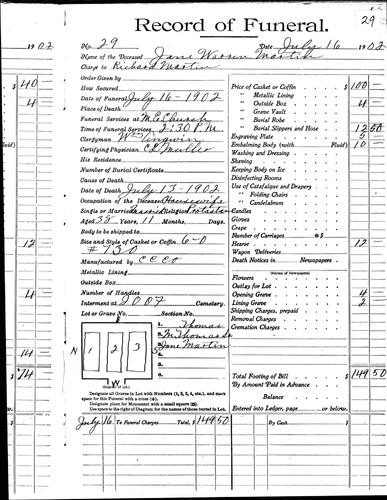 29
Record of Funeral.
1902
No. 29
Date July 16 1902
Name of the Deceased Jane Warren Martin
Charge to Richard Martin
Order Given by
How Secured
Date of Funeral July 16-1902
Place of Funeral
Funeral Services at M.E. Church
Time of Funeral Services 2:30 P.M.
Clergyman Wm
Certifying Physician
His Residence
Number of Burial Certificate
Cause of Death
Date of Death July 13-1902
Occupation of the Deceased Housewife
Single or Married Married Religion Protestant
Aged 38 Years, 11 Months, Days
Body to be shipped to
Size and Style of Casket or Coffin 6-0
#730
Manufactured by C C Co
Metallic Lining
Outside Box
Number of Handles
Interment at I O O F Cemetery.
Lot or Grave No. Section No.
1 2 3
N
S
W
1. Thomas
2.
3. Jane Martin
4.
5.
6.
Designate all Graves in Lot with Numbers (1, 2, 3, 4, etc.), and mark
space for this Funeral with a cross (+).
Designate place for Monument with a small square (□).
Use space to the right of Diagram for the names of those buried in Lot.
Price of Casket or Coffin $ 100
" Metallic Lining
" Outside Box 4
" Grave Vault
" Burial Robe
" Burial Slippers and Hose 12 50
Engraving Plate 5
Embalming Body (with Fluid) 10
Washing and Dressing
Shaving
Keeping Body on Ice
Disinfecting Rooms
Use of Catafalque and Drapery
" Folding Chairs
" Candelabrum
Candles
Gloves
Crape
Number of Carriages @ $
Hearse 12
Wagon Deliveries
Death Notices in Newspapers
(Names of Newspapers)
Flowers
Outlay for Lot
Opening Grave 4
Lining Grave 2
Shipping Charges, prepaid
Removal Charges
Cremation Charges
Total Footing of Bill $ 149 50
By Amount Paid in Advance
Balance
Entered into Ledger, page or below.
July 16 To Funeral Charges Total, $ 149 50
By Cash $
$ 40
4
12
4
14
$ 74